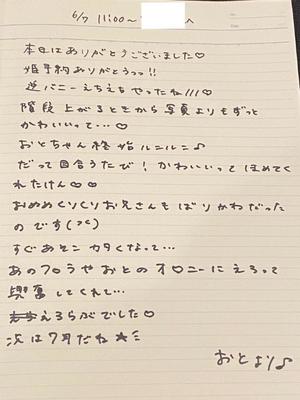 6/7 11:00〜 へ
本日はありがとうございました♡
姫予約ありがとうっっ!!
逆バニーえちえちやったね///♡
階段上がるときから写真よりもずっと
かわいいって…♡
おとちゃん終始ルンルン♪
だって目合うたび!かわいいってほめてく
れたけん♡♡
おめめくりくりお兄さんもばりかわだった
のです
すぐあそこカタくなって…
あのフロラやおとのオロニーにえろって
興奮してくれて…
えろらぶでした♡
次は7月だね
おとより♪